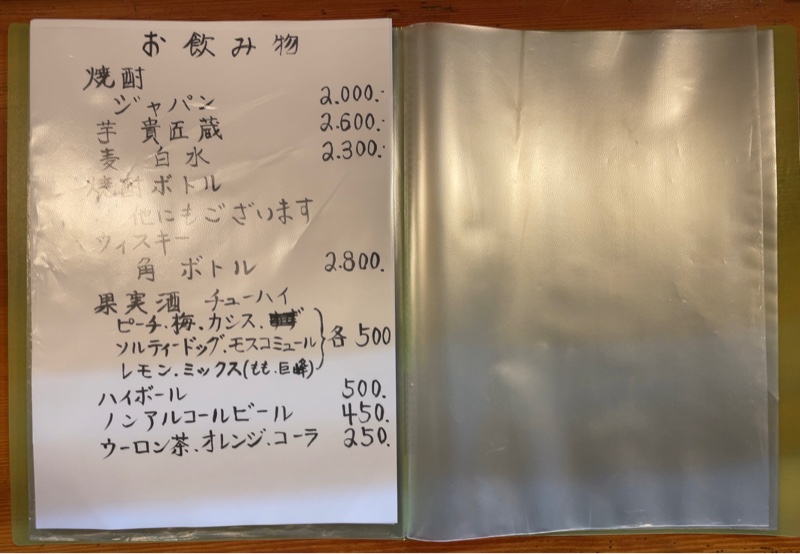 お飲み物
焼酎
ジャパン 2.000.-
芋 貴匠蔵 2.600.-
麦 白水 2.300.-
焼酎ボトル
他にもございます
ウィスキー
角 ボトル 2.800.
果実酒 チューハイ
ピーチ.梅.カシス.
ソルティードッグ.モスコミュール 各 500
レモン.ミックス(もも.巨峰)
ハイボール 500.
ノンアルコールビール 450.
ウーロン茶.オレンジ.コーラ 250.